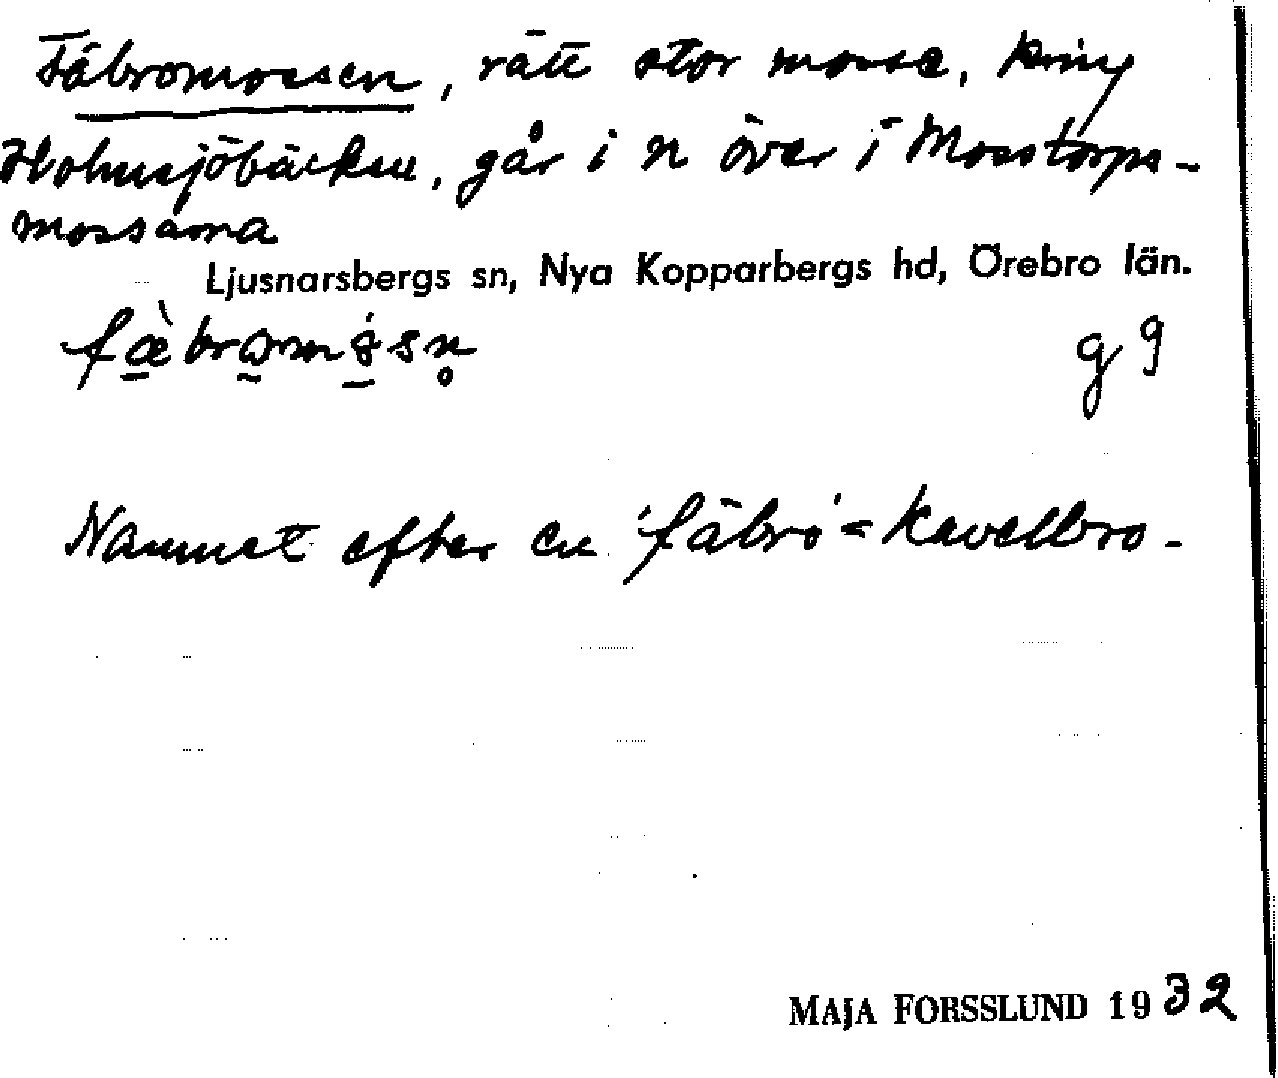 Fäbromossen, rätt stor mosse, kring
Holmsjöbäcken, går i n över i Mosstorps-
mossarna
Ljusnarsbergs sn, Nya Kopparbergs hd, Örebro län.
g 9
Namnet efter en 'fäbro' = kavelbro-
MAJA FORSSLUND 1932